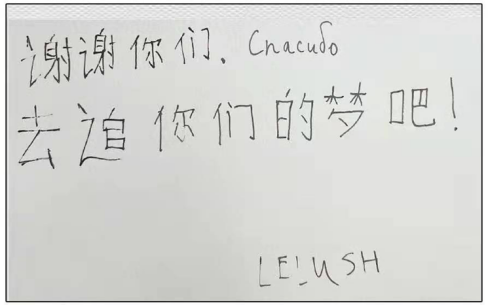 谢谢你们. Спасибо
去追你们的梦吧!
LELUSH